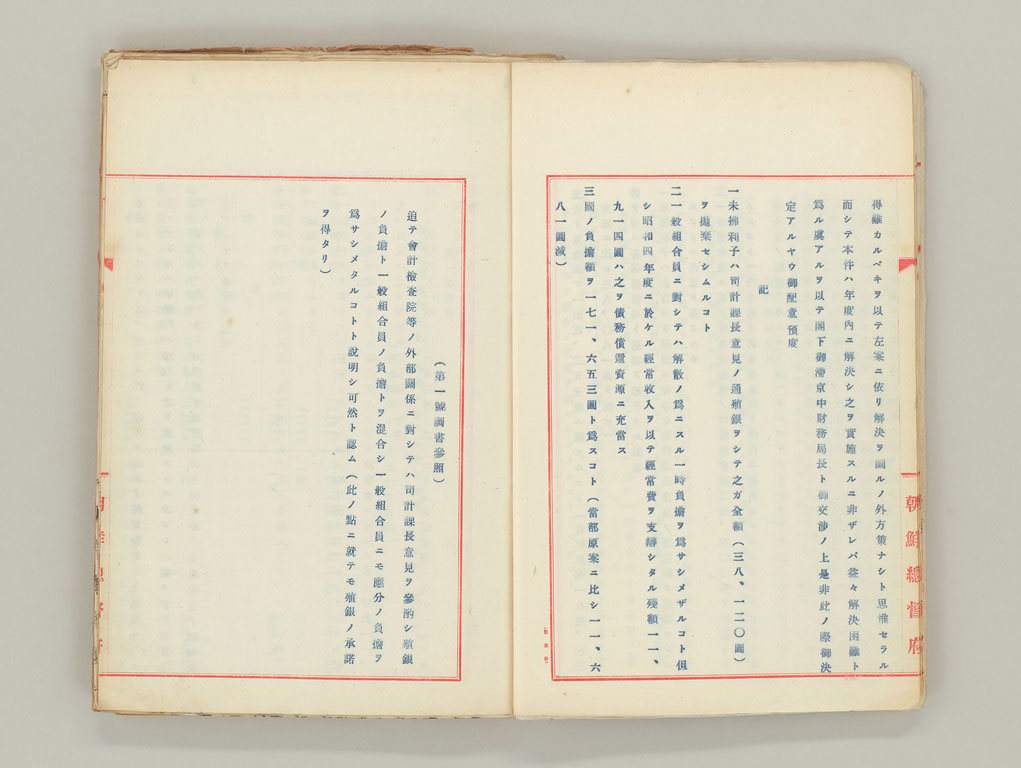 得難カルベキヲ以テ左案ニ依リ解決ヲ圖ルノ外方策ナシト思惟セラル
而シテ本件ハ年度內ニ解決シ之ヲ實施スルニ非ザレバ益々解決困難ト
爲ル處アルヲ以テ閣下御滯京中財務局長ト御交涉ノ上是非此ノ際御決
定アルヤウ御配意預度
記
一未拂利子ハ司計課長意見ノ通殖銀ヲシテ之ガ全額(三八、一二〇圓)
ヲ拋棄セシムルコト
二一般組合員ニ對シテハ解散ノ爲ニスル一時負擔ヲ爲サシメザルコト但
シ昭和四年度ニ於ケル經常收入ヲ以テ經常費ヲ支辨シタル殘額一一、
九一四圓ハ之ヲ債務償還資源ニ充當ス
三國ノ負擔額ヲ一七一、六五三圓ト爲スコト(當部原案ニ比シ一一、六
八一圓減)
朝鮮總督府
(第一號調書參照)
追テ會計檢査院等ノ外部關係ニ對シテハ司計課長意見ヲ參酌シ殖銀
ノ負擔ト一般組合員ノ負擔トヲ混合シ一般組合員ニモ應分ノ負擔ヲ
爲サシメタルコトト說明シ可然ト認ム(此ノ點ニ就テモ殖銀ノ承諾
ヲ得タリ)